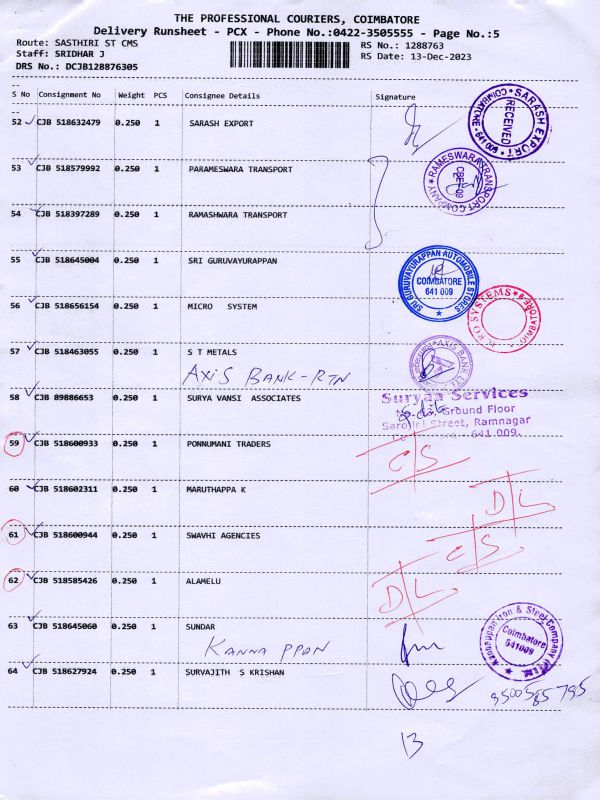 THE PROFESSIONAL COURIERS, COIMBATORE
Delivery Runsheet - PCX - Phone No.:0422-3505555 - Page No.:5
Route: SASTHIRI ST CMS
Staff: SRIDHAR J
DRS No.: DCJB128876305
RS No.: 1288763
RS Date: 13-Dec-2023
S No Consignment No Weight PCS Consignee Details Signature
52 CJB 518632479 0.250 1 SARASH EXPORT
SARASH EXPORT COIMBATORE - 641 009
RECEIVED
53 CJB 518579992 0.250 1 PARAMESWARA TRANSPORT
RAMESWARA TRANSPORT COMPANY
54 CJB 518397289 0.250 1 RAMASHWARA TRANSPORT
55 CJB 518645004 0.250 1 SRI GURUVAYURAPPAN
SRI GURUVAYURAPPAN AUTOMOBILE STORES
COIMBATORE
641 009
56 CJB 518656154 0.250 1 MICRO SYSTEM
SYSTEMS
57 CJB 518463055 0.250 1 S T METALS
AXIS BANK-RTN
AXIS BANK LTD
58 CJB 89886653 0.250 1 SURYA VANSI ASSOCIATES
Suryaa Services
Ground Floor
Street, Ramnagar
641 009.
59 CJB 518600933 0.250 1 PONNUMANI TRADERS
C/S
60 CJB 518602311 0.250 1 MARUTHAPPA K
D/L
61 CJB 518600944 0.250 1 SWAVHI AGENCIES
C/S
62 CJB 518585426 0.250 1 ALAMELU
D/L
63 CJB 518645060 0.250 1 SUNDAR
KANNAPPAN
Kannappan Iron & Steel Company
Coimbatore
641009
64 CJB 518627924 0.250 1 SURVAJITH S KRISHAN
9500585795
13